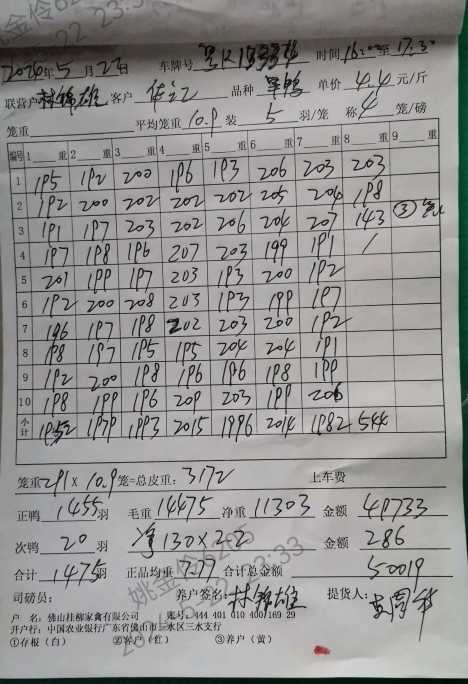 姚金伶6205
2024年5月22日 车牌号 时间16:00至17:30
联营户林锦雄 客户 品种 单价4.4元/斤
笼重: 平均笼重10.9装 5 羽/笼 称 4 笼/磅
编号 1 重 2 重 3 重 4 重 5 重 6 重 7 重 8 重 9 重
1 195 192 200 196 193 206 203 203
2 192 200 202 202 202 205 204 198
3 191 197 203 202 206 204 207 143 ③
4 197 198 196 207 203 199 191 /
5 201 199 197 203 193 200 192
6 192 200 208 203 192 199 197
7 196 197 198 202 203 200 192
8 198 197 195 195 204 204 191
9 192 200 198 196 196 198 199
10 198 199 196 209 203 199 206
小计 1952 1979 1993 2015 1996 2014 1982 544
笼重291×10.9笼=总皮重: 3172 上车费
正鸭 1455羽 毛重 14475 净重 11303 金额 49733
次鸭 20 羽 净130×2.2 金额 286
合计 1475羽 正品均重 7.77 合计总金额 50019
司磅员: 养户签名: 林锦雄 提货人:
户 名: 佛山桂柳家禽有限公司 账号: 444 401 010 400 169 29
开户行: 中国农业银行广东省佛山市三水区三水支行
①存根(白) ②客户(红) ③养户(黄)